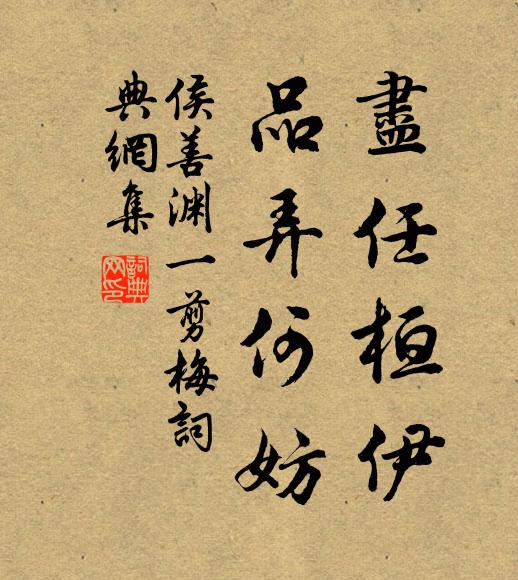 盡任桓伊
品弄何妨
侯善渊一剪梅詞
典網集
詞典
网印